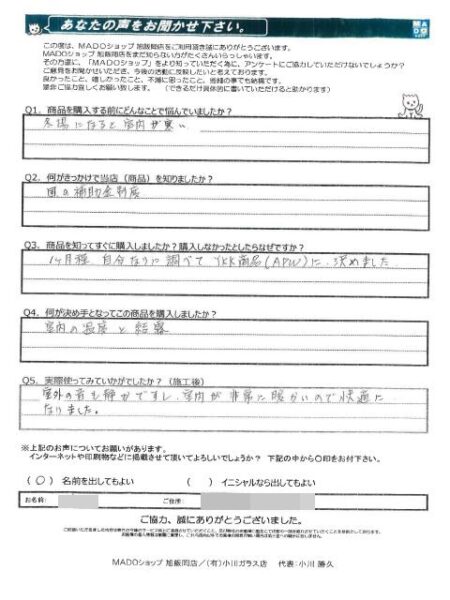 あなたの声をお聞かせ下さい。
MADO
この度は、MADOショップ 旭飯岡店をご利用頂き誠にありがとうございます。
MADOショップ 旭飯岡店をまだ知らない方がたくさんいらっしゃいます。
その方達に、「MADOショップ」をより知っていただく為に、アンケートにご協力していただけないでしょうか?
ご意見をお聞かせいただき、今後の活動に反映したいと考えております。
良かったこと、嬉しかったこと、不満に思ったこと、皆様の事でも結構です。
是非ご協力宜しくお願い致します。 (できるだけ具体的に書いていただけると助かります)
Q1. 商品を購入する前にどんなことで悩んでいましたか?
冬場になると室内が寒い
Q2. 何がきっかけで当店(商品)を知りましたか?
国の補助金制度
Q3. 商品を知ってすぐに購入しましたか?購入しなかったとしたらなぜですか?
1ヶ月程 自分なりに調べて YKK商品(APW)に決めました
Q4. 何が決め手となってこの商品を購入しましたか?
室内の温度と結露
Q5. 実際使ってみていかがでしたか?(施工後)
室外の音も静かですし、室内が非常に暖かいので快適に
なりました。
※上記のお声についてお願いがあります。
インターネットや印刷物などに掲載させて頂いてよろしいでしょうか? 下記の中から○印をお付下さい。
(○) 名前を出してもよい ( ) イニシャルなら出してもよい
お名前: ご住所:
ご協力、誠にありがとうございました。
MADOショップ 旭飯岡店/(有)小川ガラス店 代表:小川 勝久